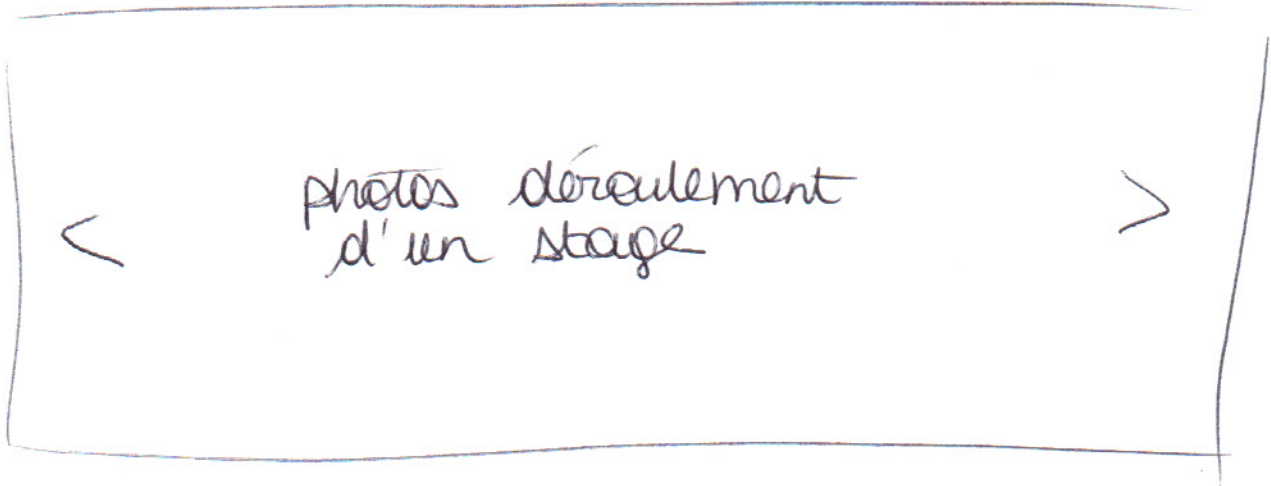 photos déroulement
< >
d'un stage